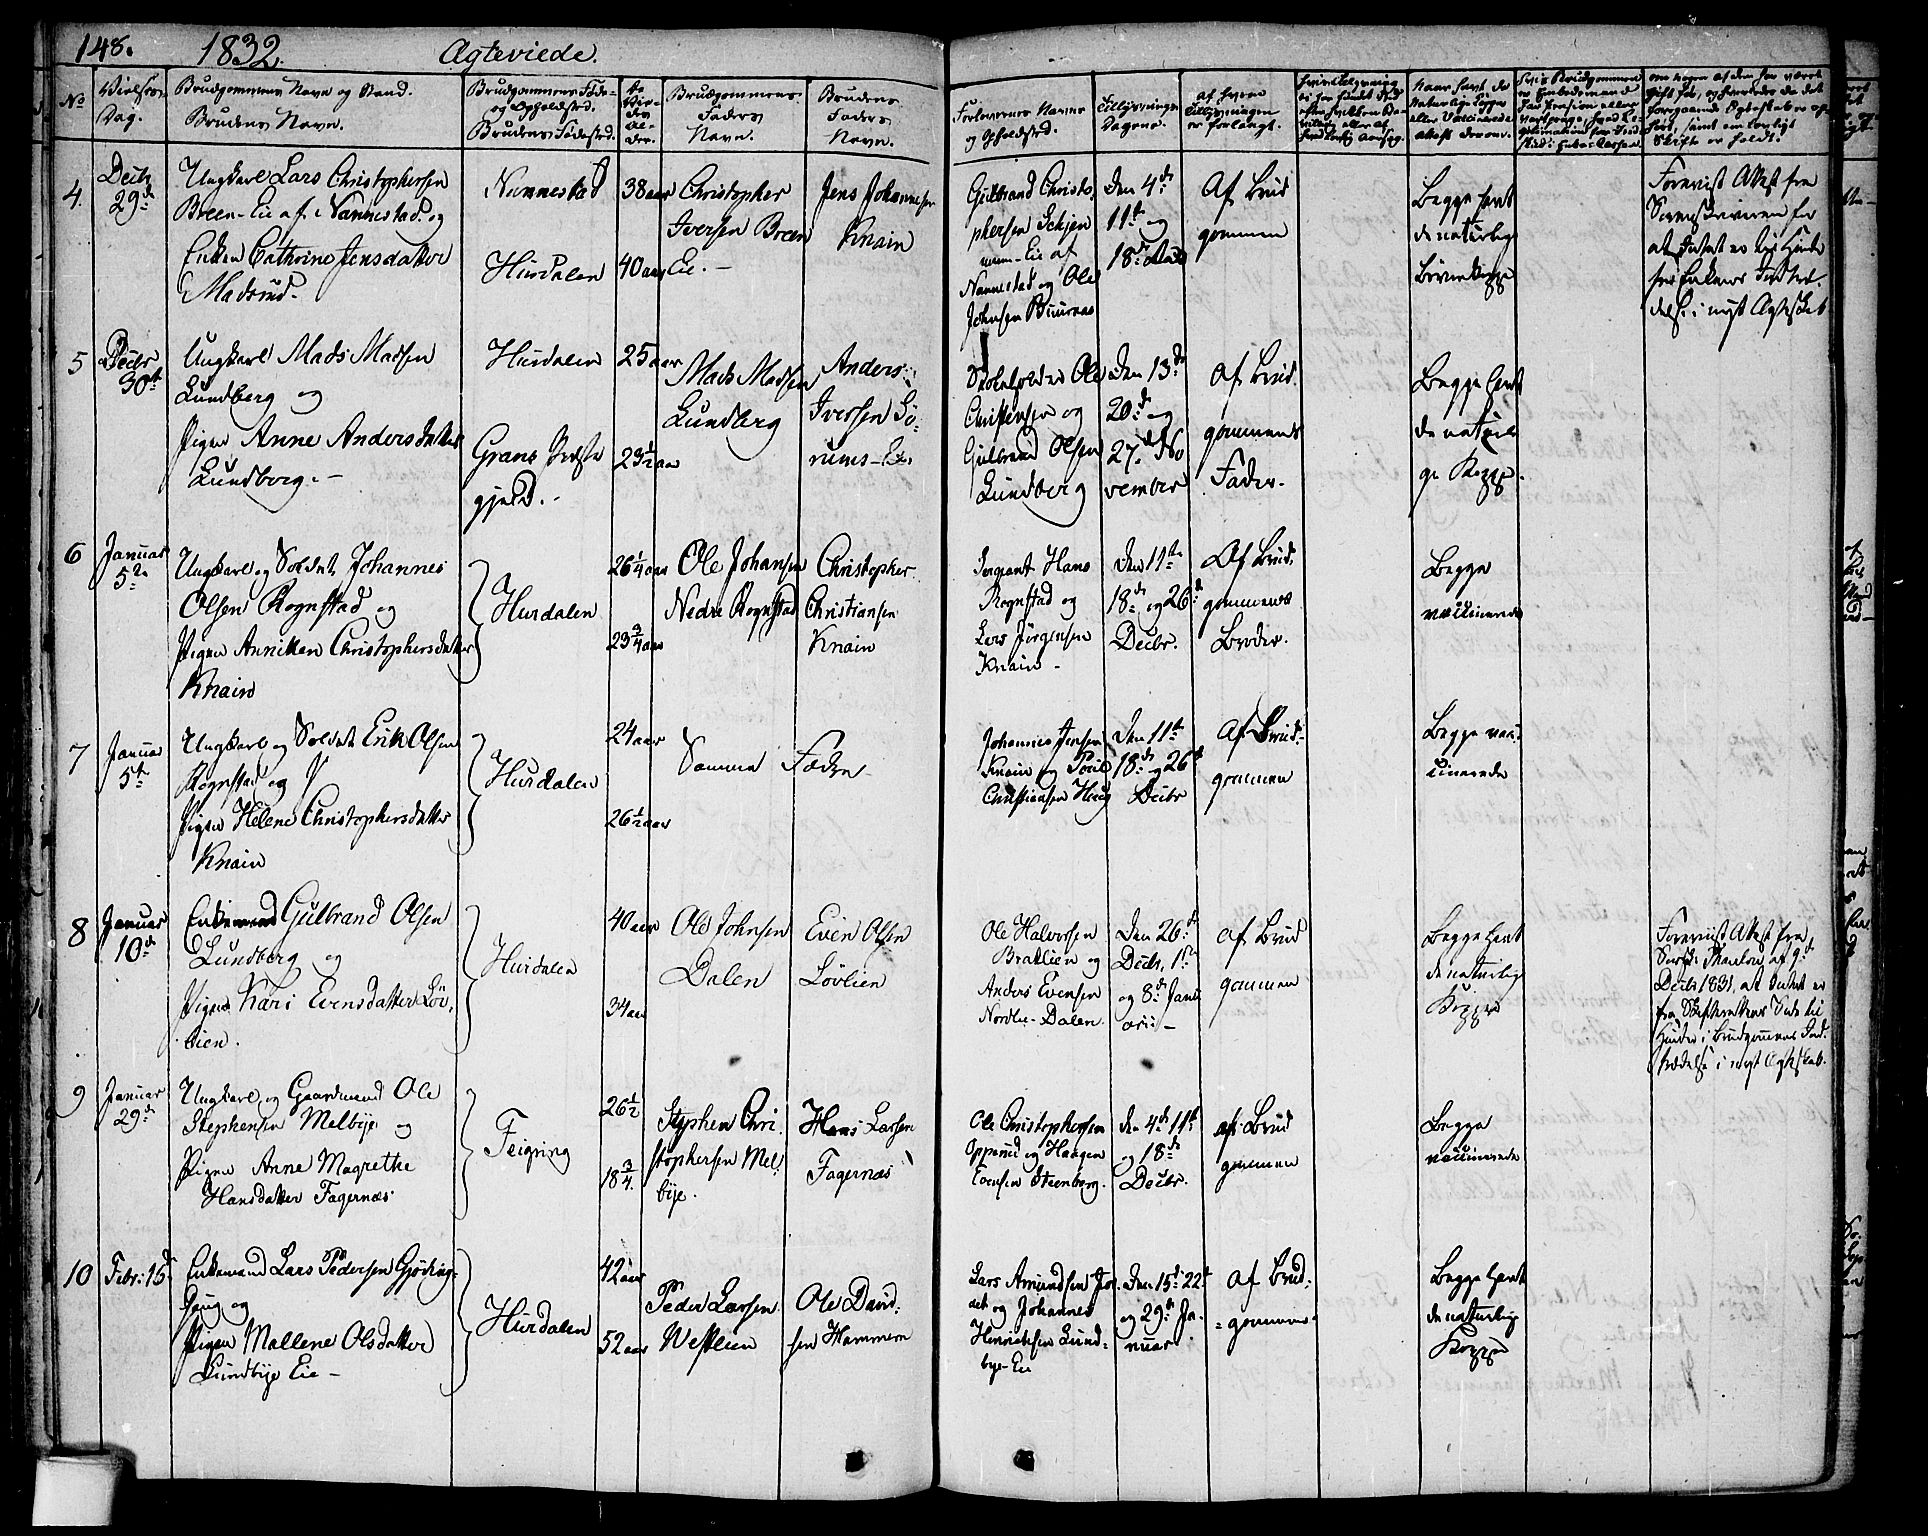 148. 1832. Ægteviede.
No
Vielses-
Dag.
Brudgommens Navn og Stand.
Brudens Navn.
Brudgommens Føde-
og Opholdsted.
Brudens Fødested.
Brudgommens
Faders
Navn.
Brudens
Faders
Navn.
Forlovernes Navne
og Opholdsted.
Tillysnings-
Dagene.
af hvem
Tillysningen
er forlangt.
4.
Decbr
29de
Ungkarl Lars Christophersen
Breen-Eie af Nannestad og
Enken Cathrine Jensdatter
Madsrud.
Nannestad
Hurdalen
38 aar
40 aar
Christopher
Iversen Breen
Eie. -
Jens Johannesen
Knain
Gulbrand Christo
phersen
-Eie af
Nannestad og Ole
Johnsen
den 4de
11te og
18de
Af Brud
gommen
Begge havt
de naturlige
Børnekopper
Foreviist Attest fra
Sorenskriveren for
at Intet er til Hinder
for Enkens Indtræ-
delse i nyt Ægteskab
5
Decbr
30te
Ungkarl Mads Madsen
Lundberg og
Pigen Anne Andersdatter
Lundberg. -
Hurdalen
Grans Præste
gjeld. -
25 aar
23 1/2 aar
Mads Madsen
Lundberg
Anders
Iversen Sö-
rums-Eie
Ole
Christensen og
Gulbrand Olsen
Lundberg
den 13de
20de og
27de No
vember
Af Brud-
gommens
Fader.
Begge havt
de naturli
ge Kopper.
6
Januar
5te
Ungkarl og Soldat Johannes
Olsen Rognstad og
Pigen Anniken Christophersdatter
Knain
Hurdalen
26 1/4 aar
23 3/4 aar
Ole Johansen
Nedre Rognstad
Christopher
Christiansen
Knain
Sergeant Hans
Rognstad og
Lars Jörgensen
Knain -
Den 11te
18de og 26de
Decbr.
Af Brud-
gommens
Broder.
Begge
vaccinerede
7
Januar
5te
Ungkarl og Soldat Erik Olsen
Rognstad og
Pigen Helene Christophersdatter
Knain
Hurdalen
24 aar
26 1/2 aar
Samme Fader
Johannes Jensen
Knain og Poul
Christiansen Haug
Den 11te
18de og 26de
Decbr
Af Brud-
gommen
Begge vac-
cinerede
8
Januar
10de
Enkemand Gulbrand Olsen
Lundberg og
Pigen Kari Evensdatter Löv-
lien.
Hurdalen
40 aar
34 aar
Ole Johnsen
Dalen
Even Olsen
Lövlien
Ole Halvorsen
Bratlien og
Anders Evensen
Nordre-Dalen.
Den 26de
Decbr, 1ste
og 8de Janu
arii -
Af Brud
gommen
Begge havt
de naturlige
Kopper
Foreviist Attest fra
af 9de
Decbr 1831, at Intet er
fra Skifterettens Side til
Hinder i Brudgommens Ind-
trædelse i nyt Ægteskab.
9
Januar
29de
Ungkarl og Gaardmand Ole
Stephensen Melbye og
Pigen Anne Magrethe
Hansdatter Fagernæs
Feigring
26 1/2
18 3/4.
Stephen Chri
stophersen Mel-
bye.
Hans Larsen
Fagernæs
Ole Christophersen
Opperud og Haagen
Evensen Steenberg.
den 4de 11te
og 18de
Decbr.
af Brud
gommen
Begge
vaccinerede
10
Febr: 15de
Enkemand Lars Pedersen Gjöding-
houg og
Pigen Mallene Olsdatter
Lundbye Eie -
Hurdalen
42 aar
52 aar
Peder Larsen
Westlien
Ole David-
sen Hammern
Lars Amundsen
og Johannes
Henrichsen Lund-
bye-Eie
Den 15de 22de
og 29de Ja-
nuar
af Brud-
gommen
Begge havt
de naturlige
Kopper